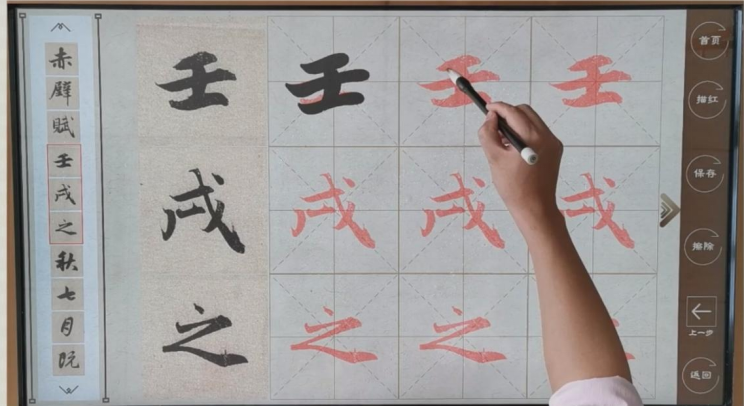 赤
壁
賦
壬
戌
之
秋
七
月
既
壬 壬 壬 壬
戌 戌 戌 戌
之 之 之
首页
描红
保存
擦除
上一步
返回